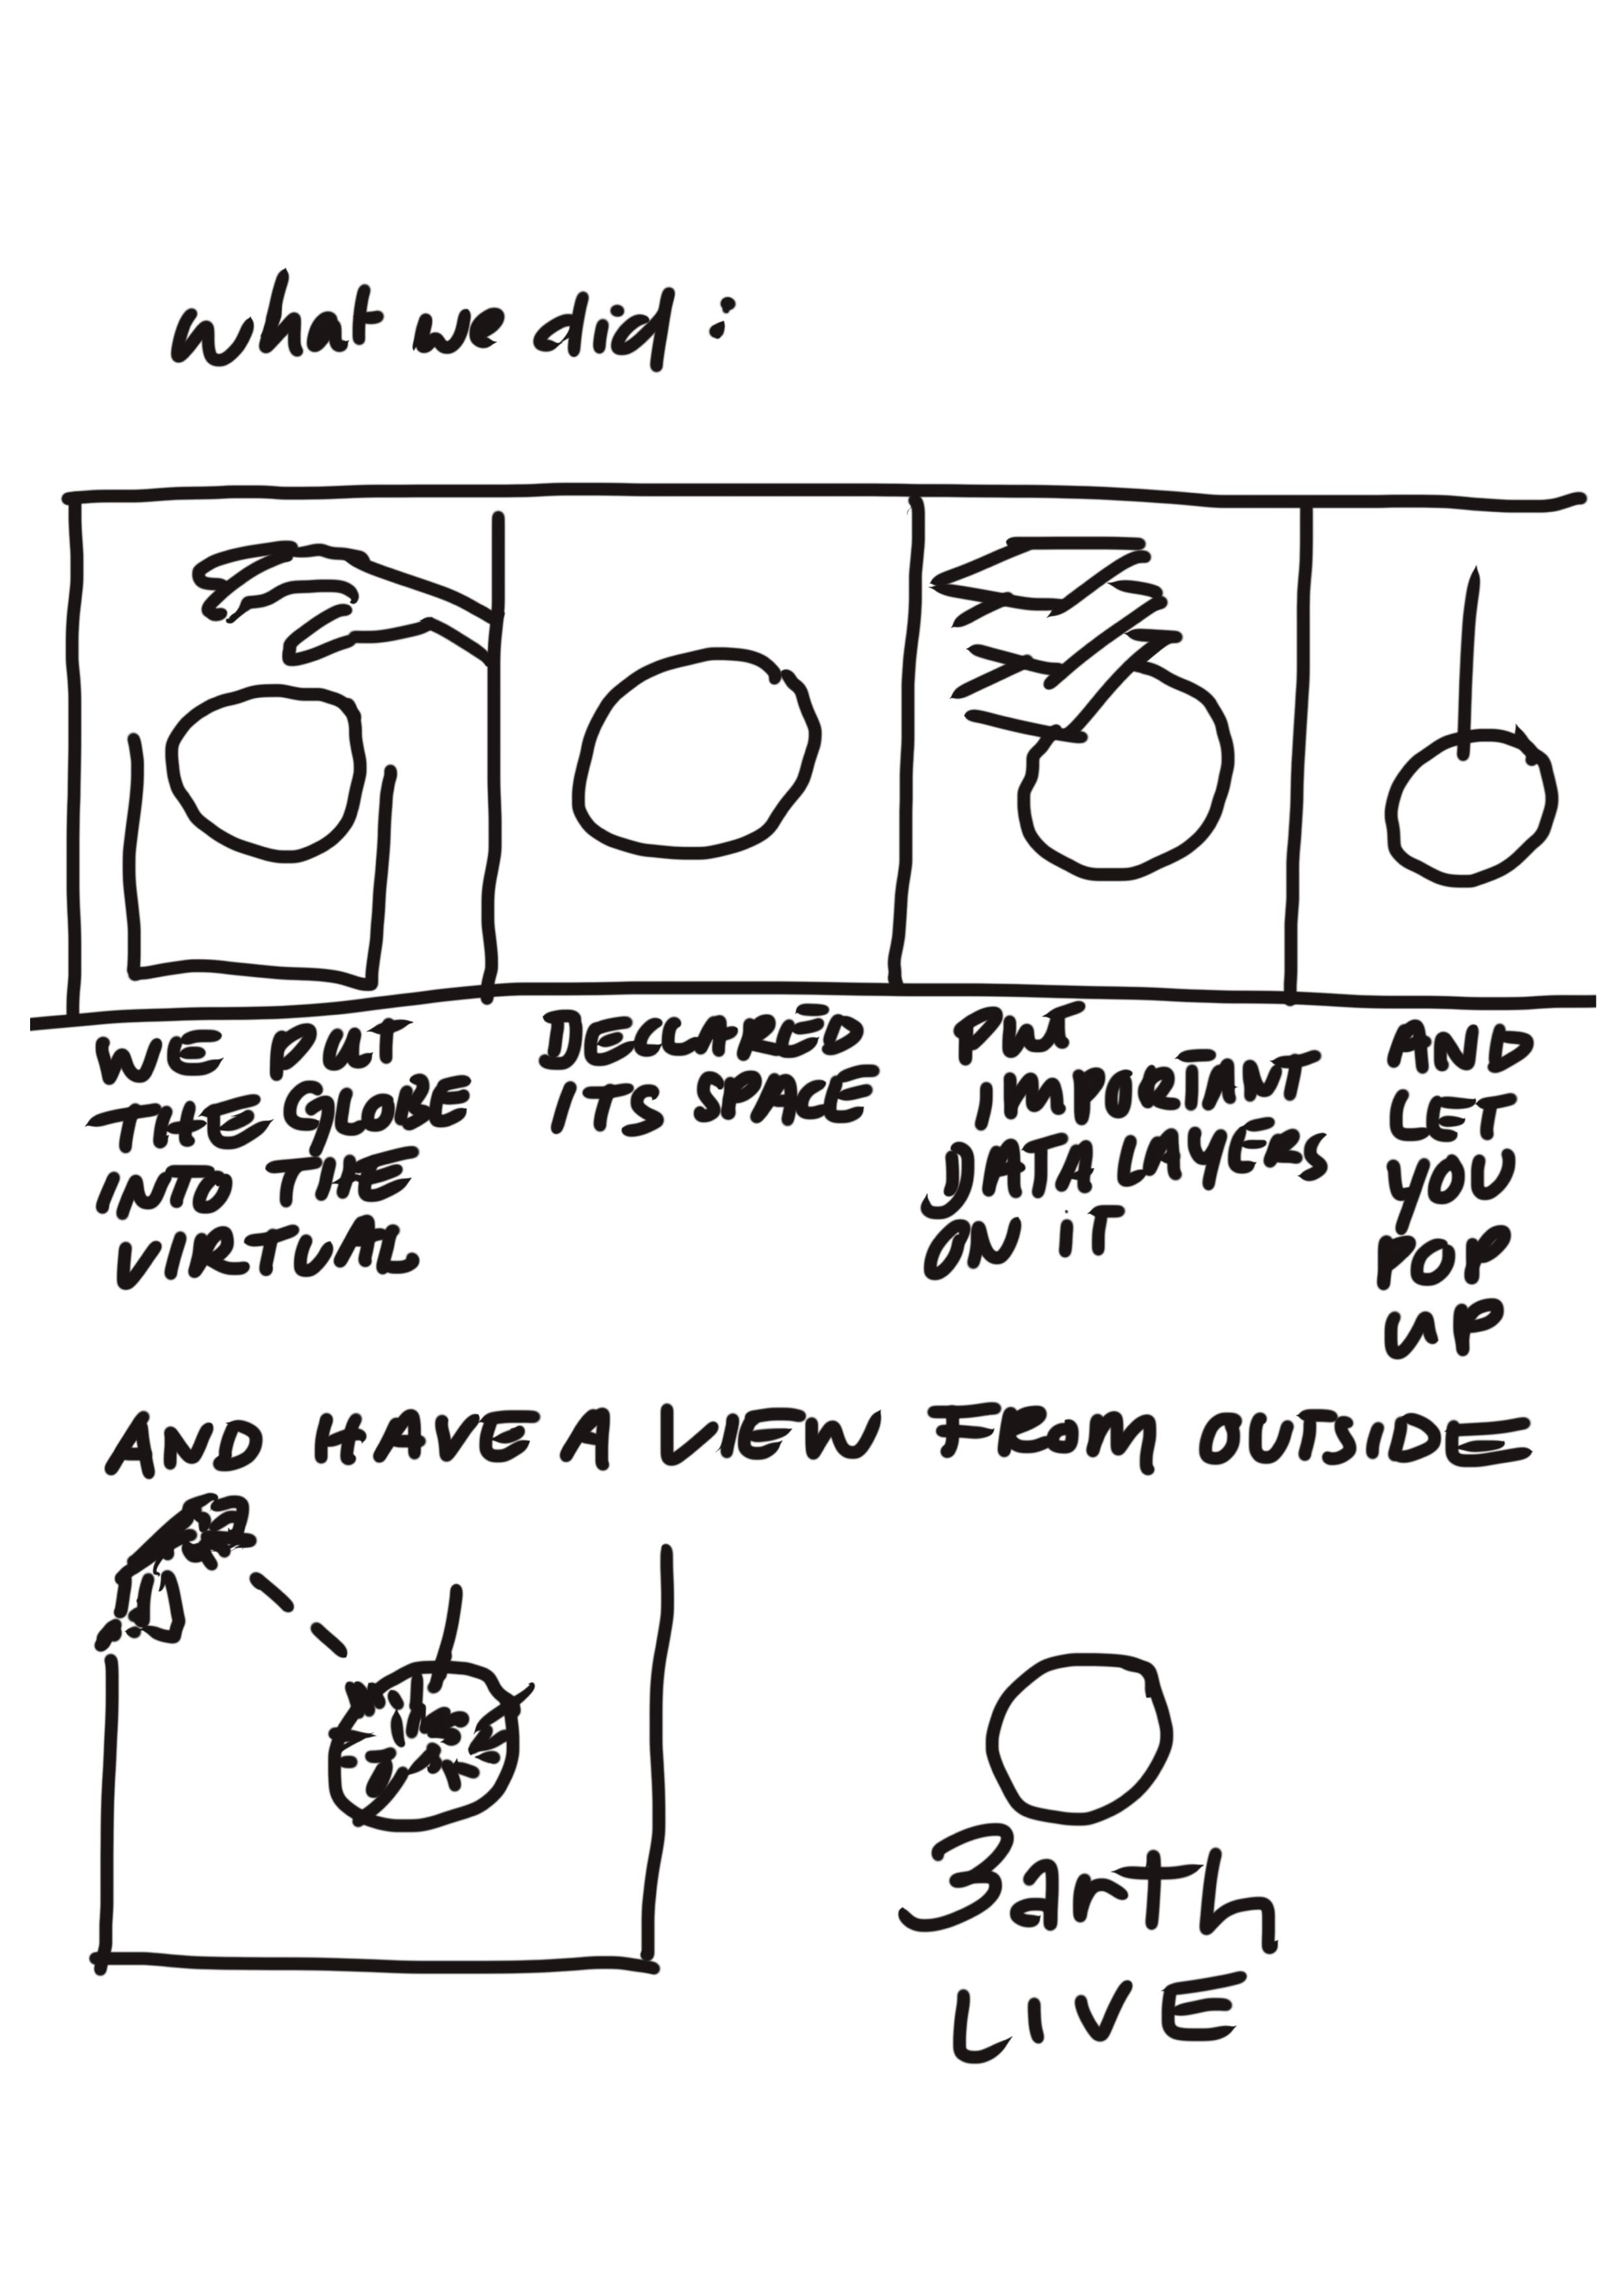 what we did :
WE PUT
THE GLOBE
INTO THE
VIRTUAL
DECLARED
ITS SPACE
PUT
IMPORTANT
DATA LAYERS
ON iT
AND
LET
YOU
POP
UP
AND HAVE A VIEW FROM OUTSIDE
3arth
LIVE